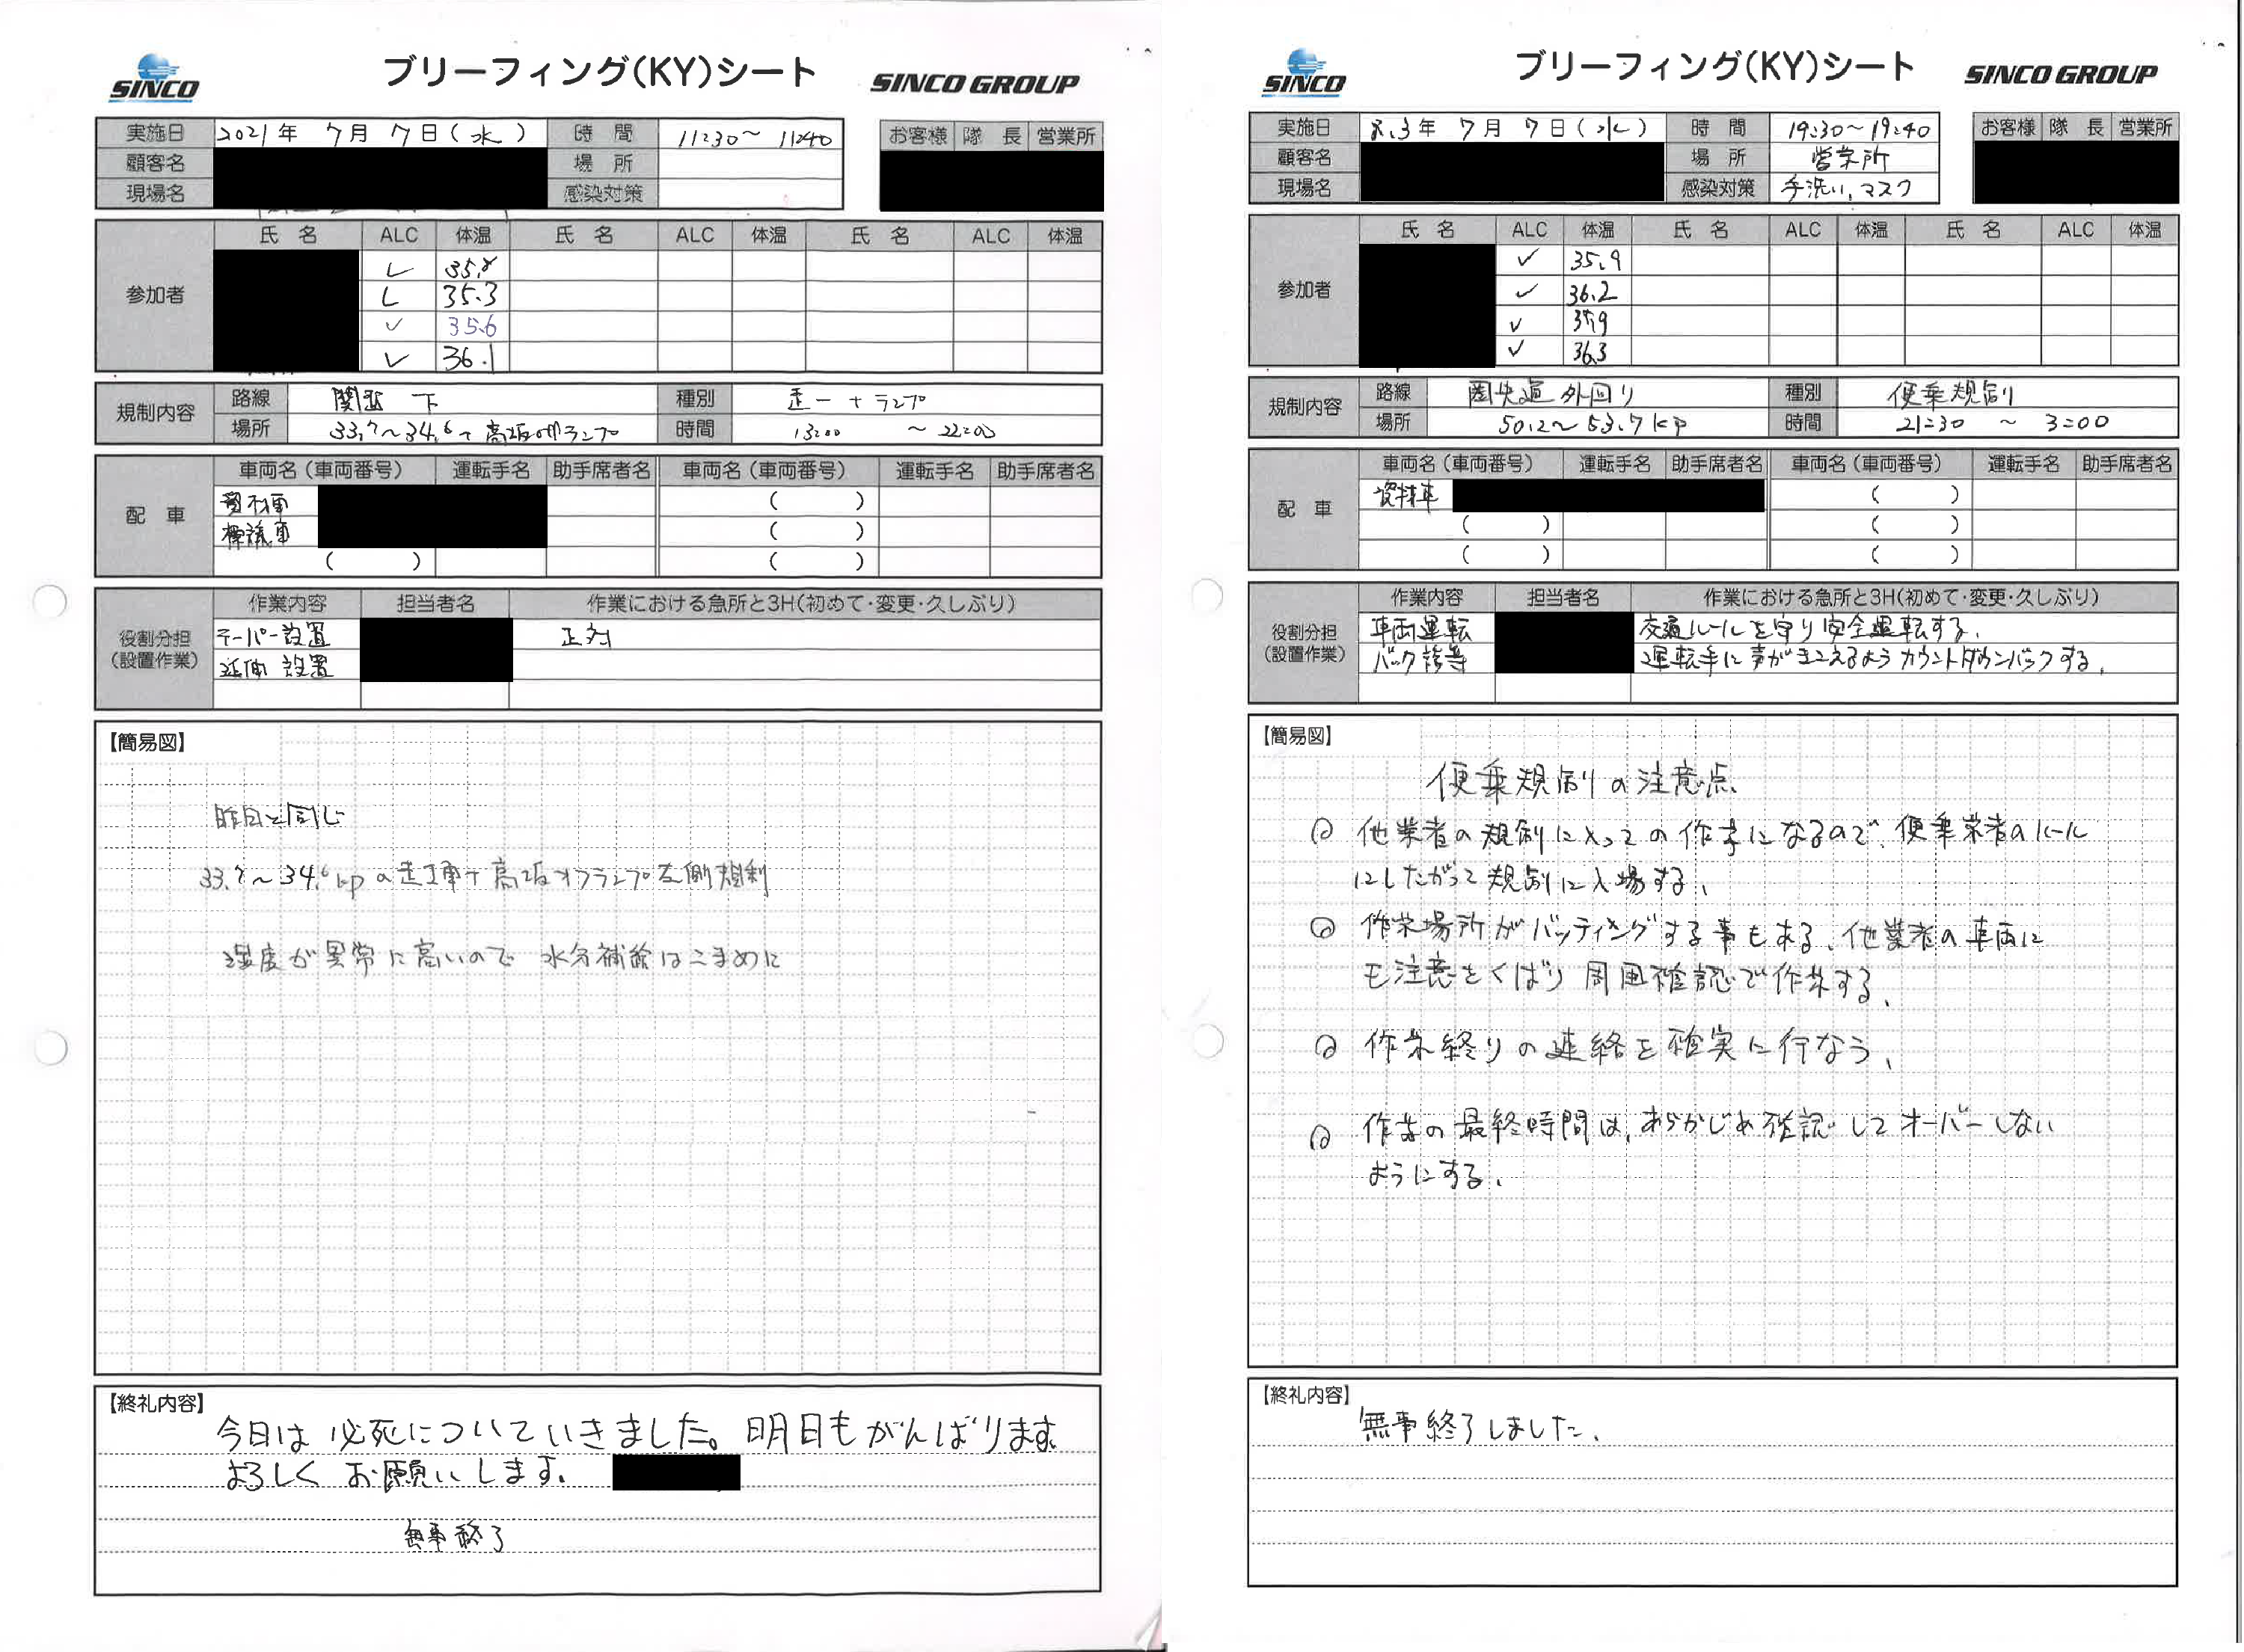 SINCO
ブリーフィング(KY)シート
SINCO GROUP
実施日 2021年 7月 7日(水) 時間 11:30～11:40
お客様 隊長 営業所
顧客名 場所
現場名 感染対策
参加者 氏名 ALC 体温 氏名 ALC 体温 氏名 ALC 体温
35.8
35.3
✓ 35.6
✓ 36.1
規制内容 路線 関越 下 種別 走一+ランプ
場所 33.7～34.6+高坂offランプ 時間 13:00 ～22:00
配車 車両名(車両番号) 運転手名 助手席者名 車両名(車両番号) 運転手名 助手席者名
資材車 ( )
標識車 ( )
( ) ( )
役割分担(設置作業) 作業内容 担当者名 作業における急所と3H(初めて・変更・久しぶり)
テーパー設置 正対
延伸 設置
【簡易図】
昨日と同じ
33.7～34.6kpの走1車+高坂オフランプ左側規制
湿度が異常に高いので 水分補給はこまめに
【終礼内容】
今日は必死についていきました。明日もがんばります
よろしくお願いします.
無事終了
SINCO
ブリーフィング(KY)シート
SINCO GROUP
実施日 R.3年 7月 7日(水) 時間 19:30～19:40
お客様 隊長 営業所
顧客名 場所 営業所
現場名 感染対策 手洗い,マスク
参加者 氏名 ALC 体温 氏名 ALC 体温 氏名 ALC 体温
✓ 35.9
✓ 36.2
✓ 35.9
✓ 36.3
規制内容 路線 圏央道 外回り 種別 便乗規制
場所 50.2～53.7kp 時間 21:30 ～ 3:00
配車 車両名(車両番号) 運転手名 助手席者名 車両名(車両番号) 運転手名 助手席者名
資材車 ( )
( ) ( )
( ) ( )
役割分担(設置作業) 作業内容 担当者名 作業における急所と3H(初めて・変更・久しぶり)
車両運転 交通ルールを守り安全運転する.
バック誘導 運転手に声がきこえるようカウントダウンバックする.
【簡易図】
便乗規制の注意点
◎ 他業者の規制に入っての作業になるので、便乗業者のルール
にしたがって規制に入場する.
◎ 作業場所がバッティングする事もある、他業者の車両に
も注意をくばり 周囲確認で作業する.
◎ 作業終りの連絡を確実に行なう.
◎ 作業の最終時間は,あらかじめ確認してオーバーしない
ようにする.
【終礼内容】
無事終了しました.